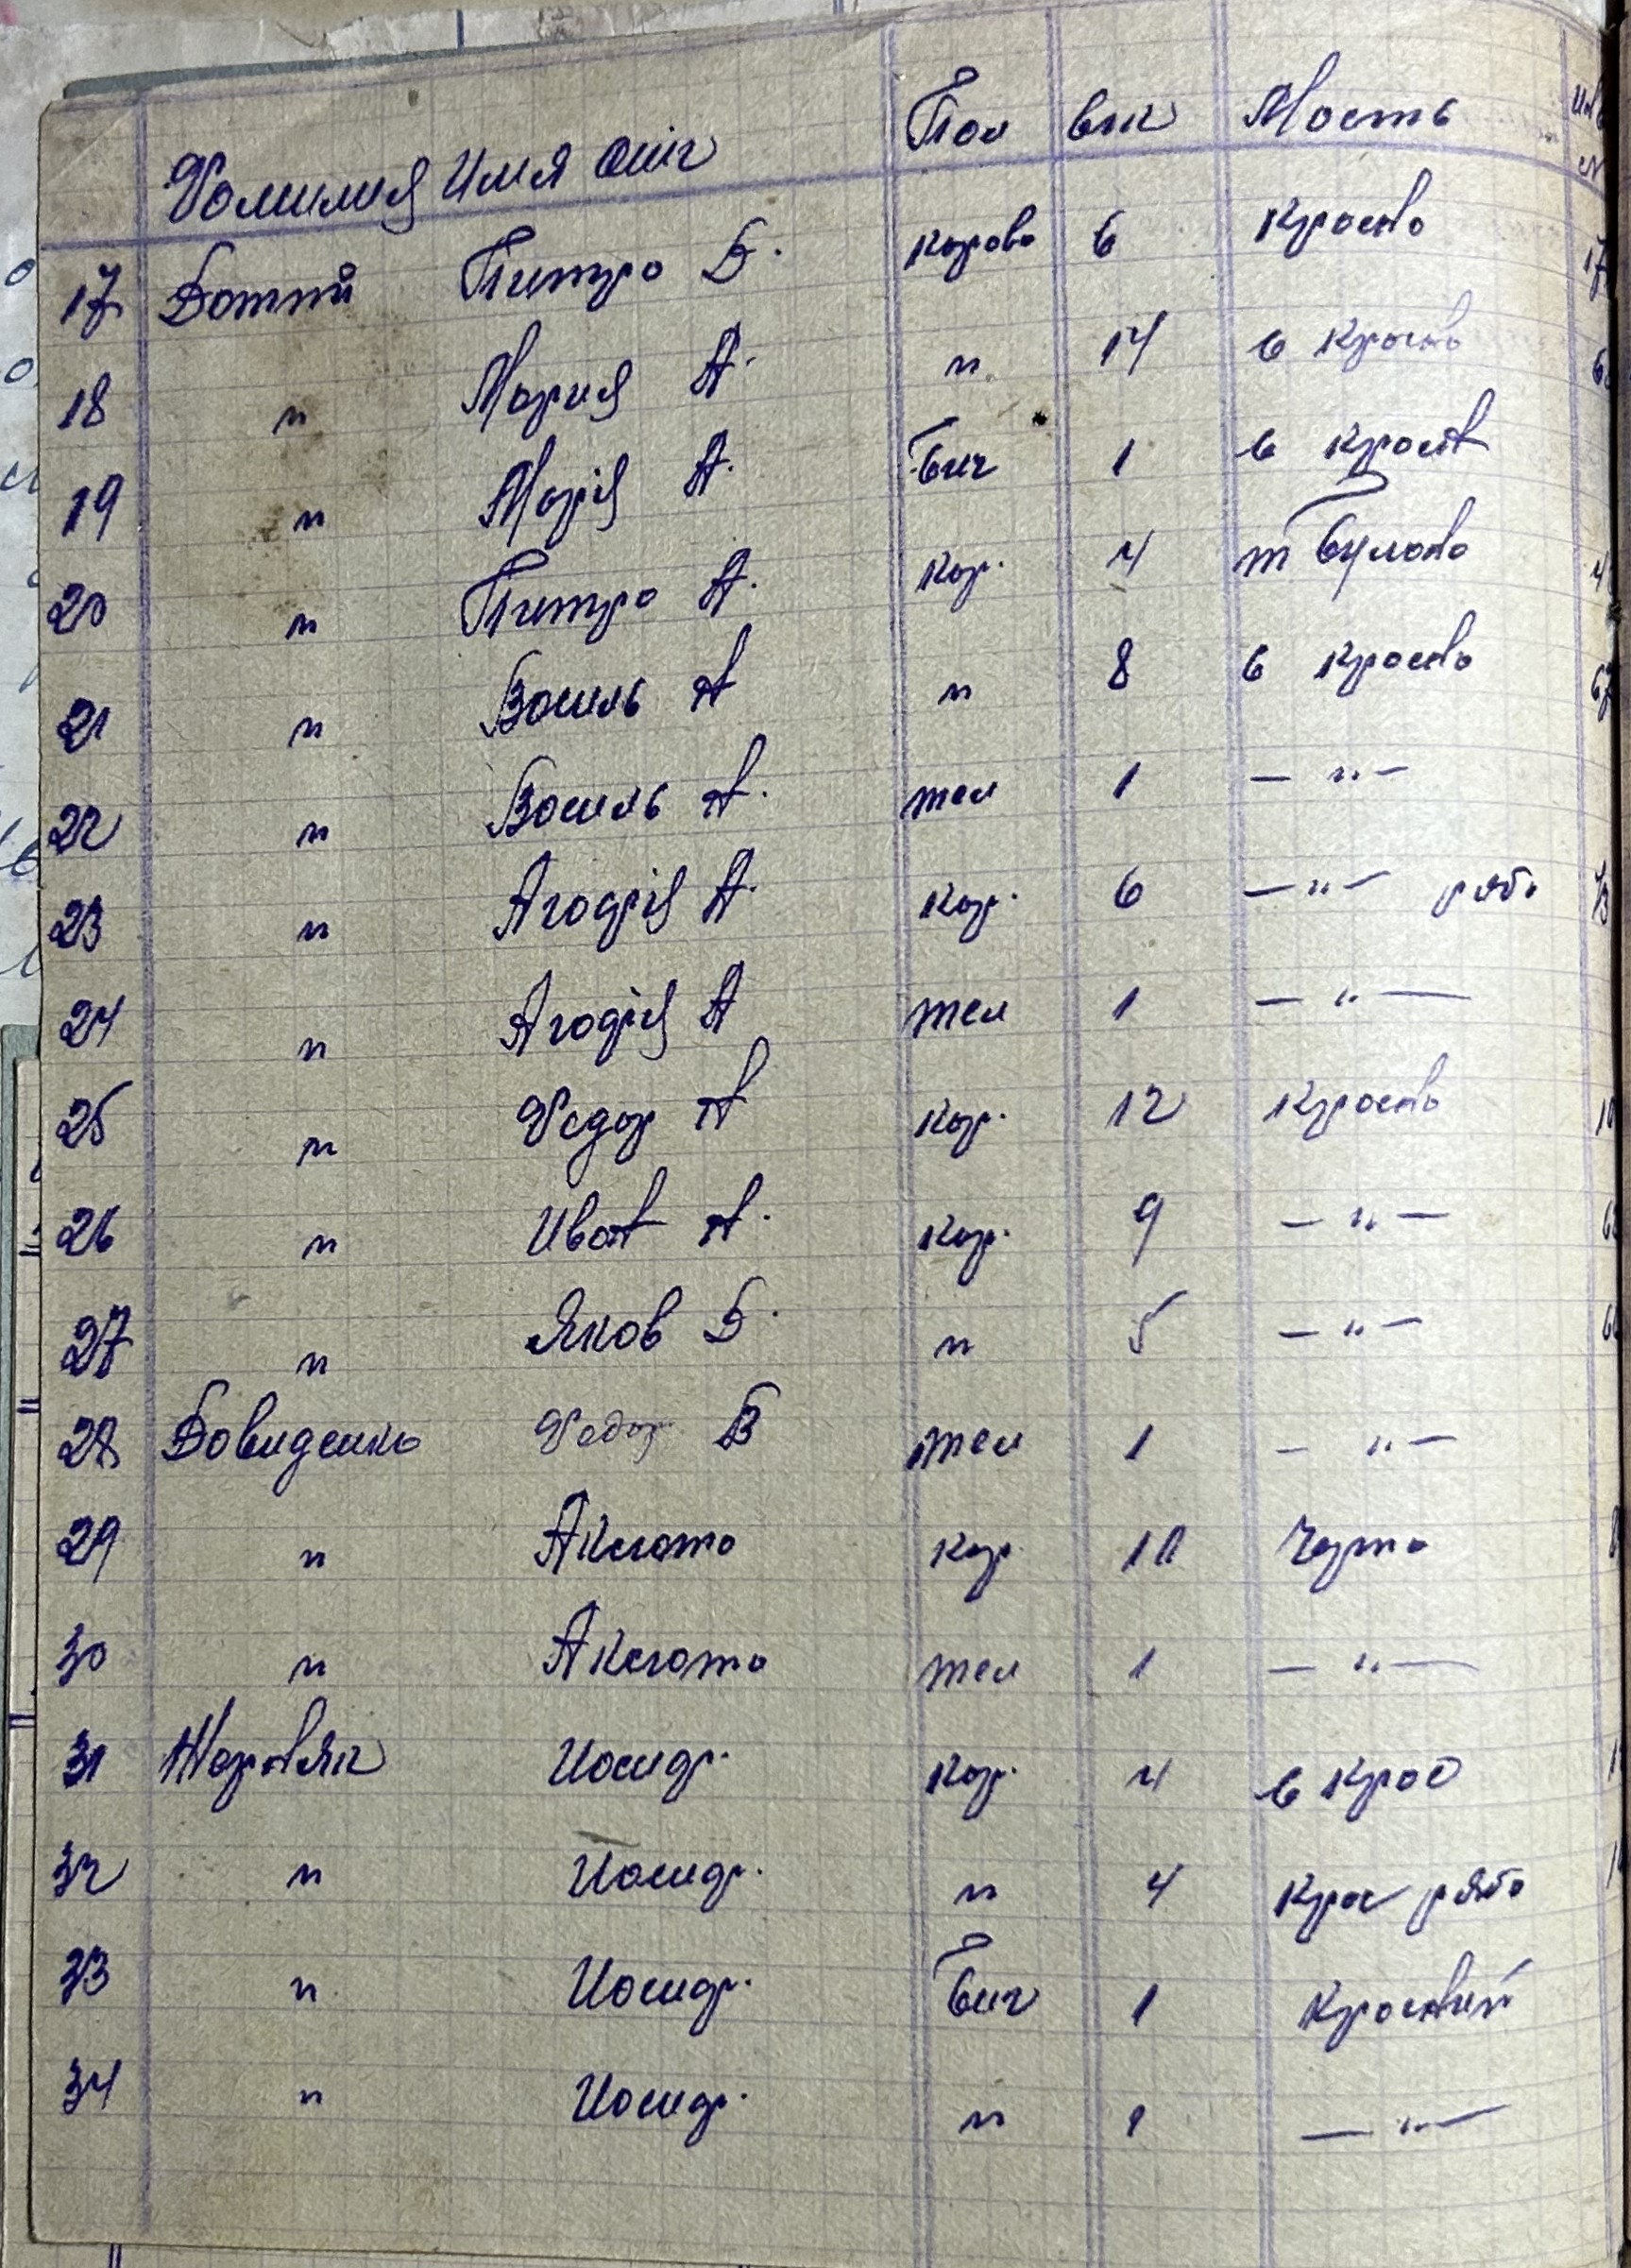 Фамилия Имя Отч Пол вік Масть
17 Боттй Питро Б. корова 6 красна
18 " Мария А. " 14 в красна
19 " Марія А. бич 1 в красн
20 " Питро А. кор. 4 т булана 4
21 " Василь А " 8 в красна 67
22 " Василь А. тел 1 — " —
23 " Агафія А. кор. 6 — " — ряба 73
24 " Агафія А тел 1 — " —
25 " Федор А кор. 12 красна
26 " Иван А. кор. 9 — " —
27 " Яков Б. " 5 — " —
28 Давиденко Федор В тел 1 — " —
29 " Аксюта кор. 10 Чорна
30 " Аксюта тел 1 — " —
31 Жоровляк Иосиф. кор. 4 в крас
32 " Иосиф. " 4 крас ряба
33 " Иосиф. бич 1 красний
34 " Иосиф. " 1 — " —